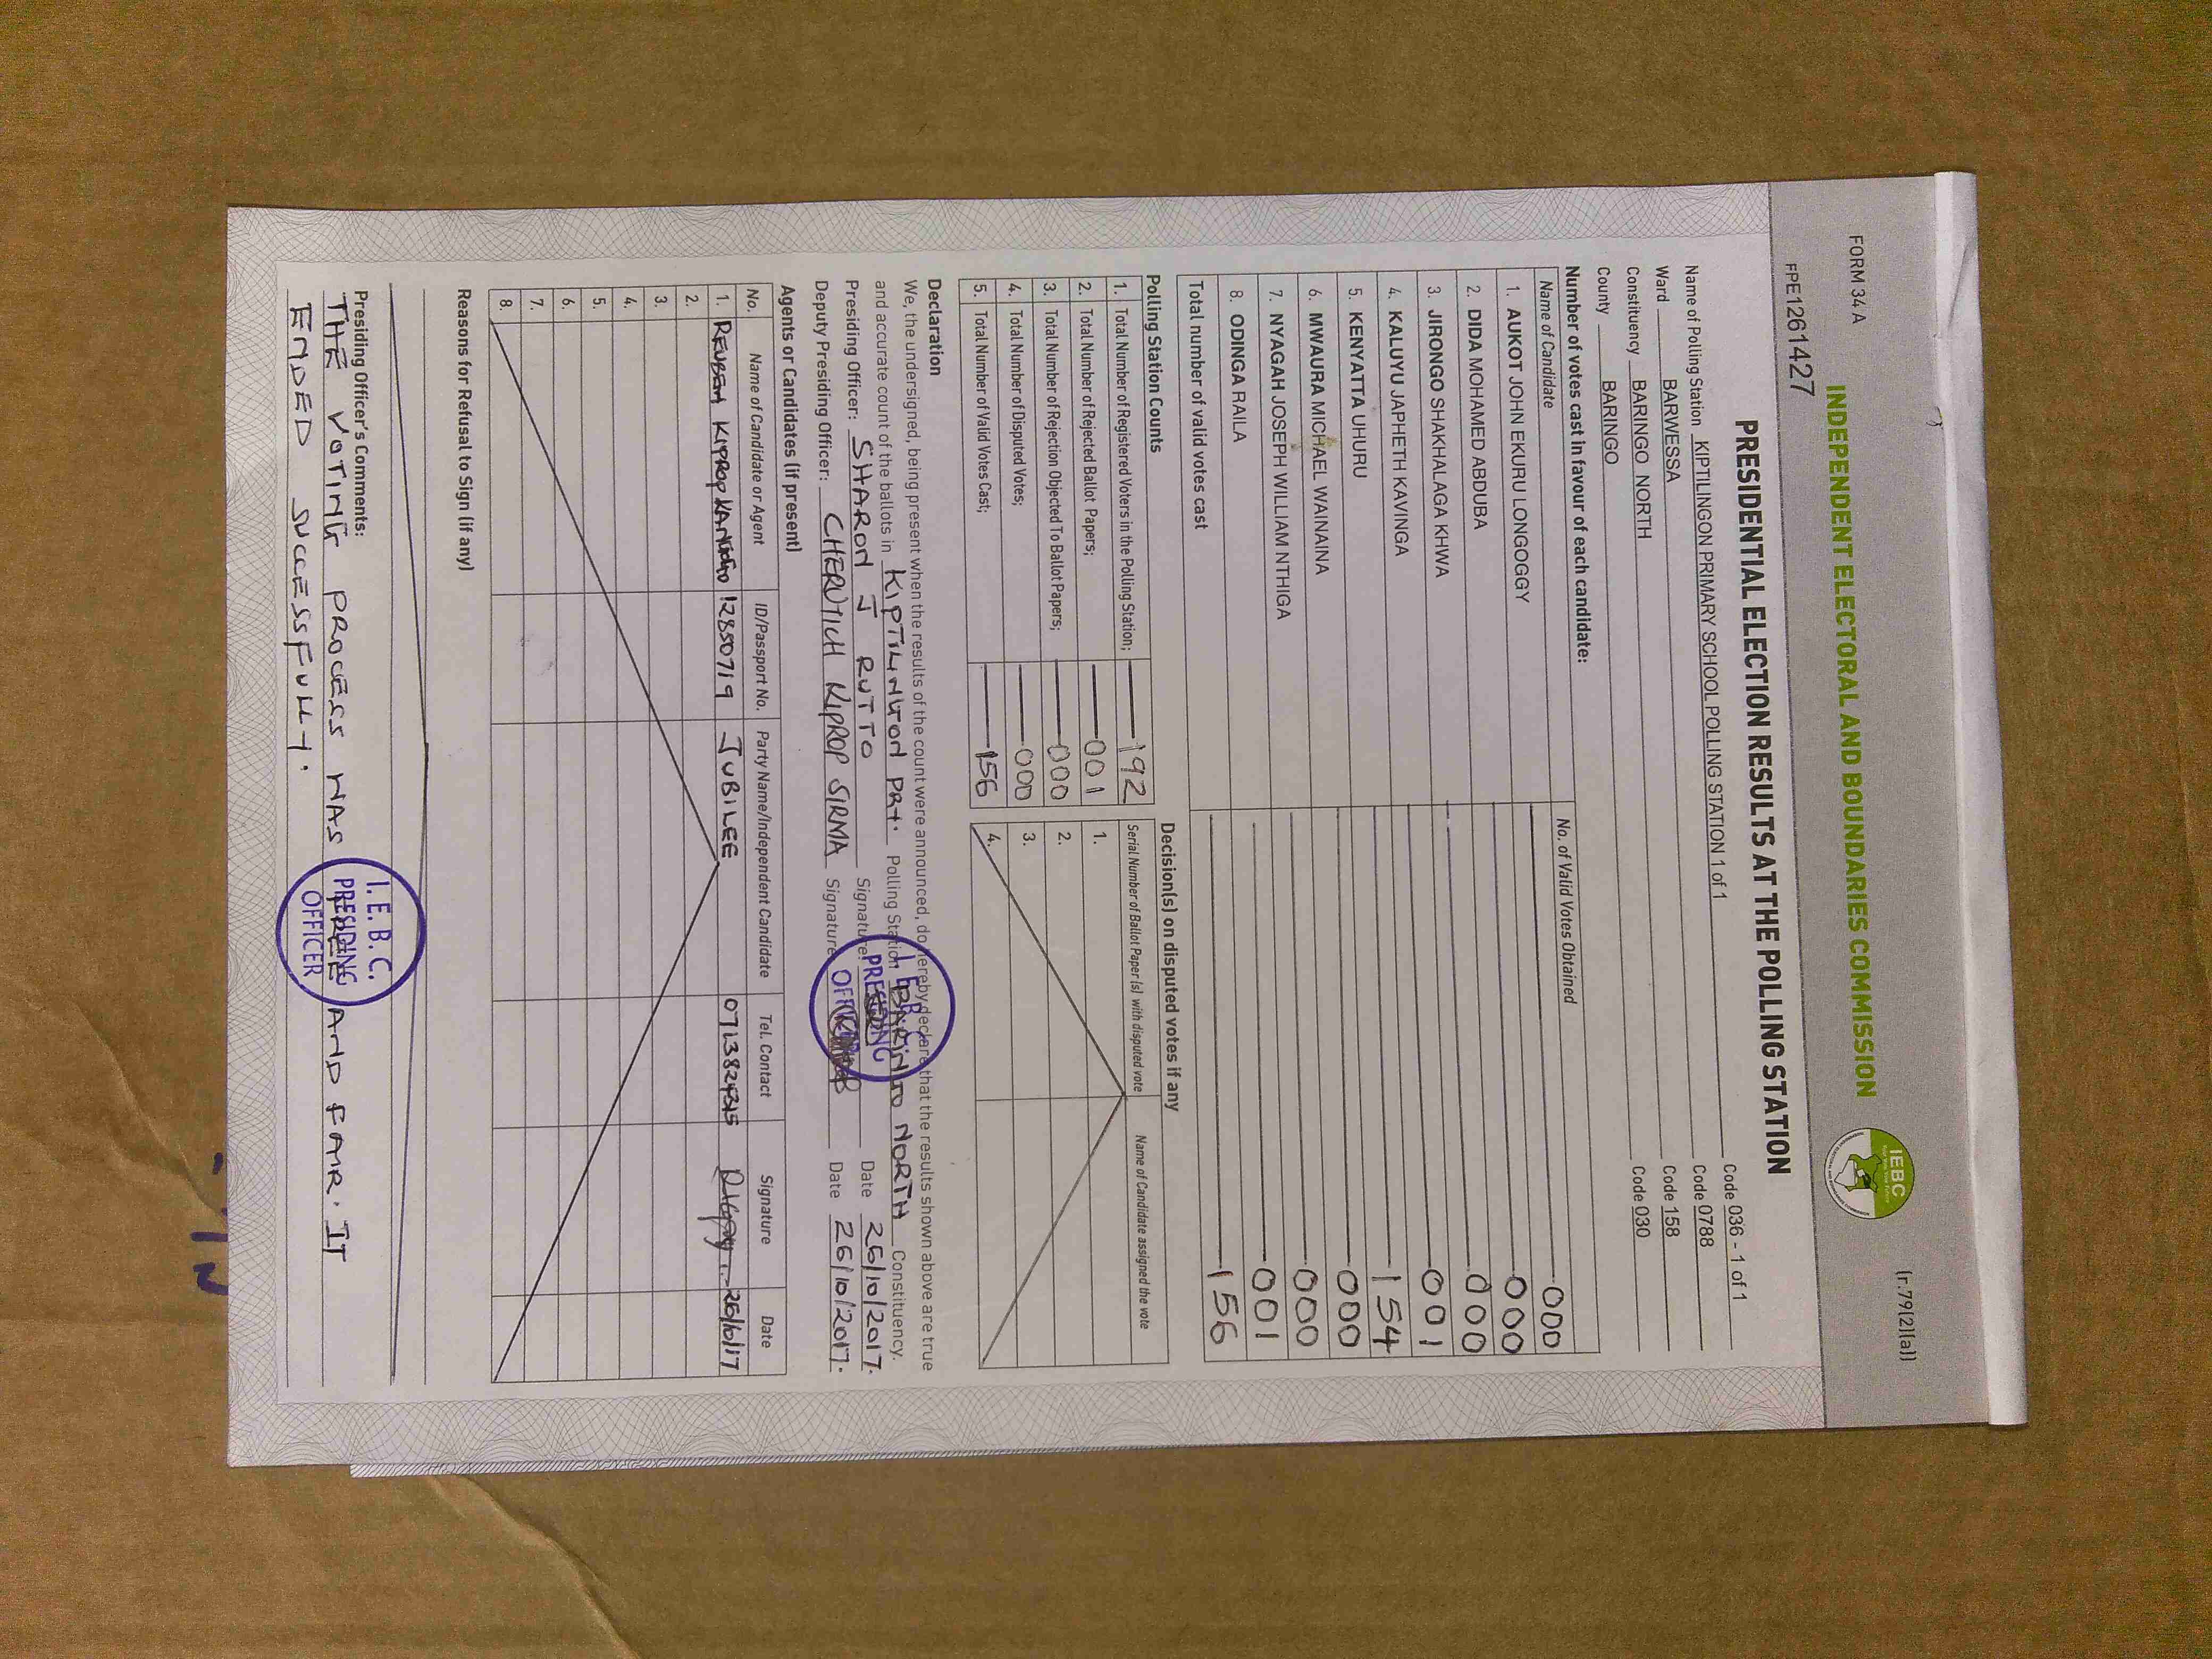 FORM 34A
(r.79(2)(a))
INDEPENDENT ELECTORAL AND BOUNDARIES COMMISSION
IEBC
FPE1261427
PRESIDENTIAL ELECTION RESULTS AT THE POLLING STATION
Name of Polling Station KIPTILINGON PRIMARY SCHOOL POLLING STATION 1 of 1 Code 036 - 1 of 1
Ward BARWESSA Code 0788
Constituency BARINGO NORTH Code 158
County BARINGO Code 030
Number of votes cast in favour of each candidate:
Name of Candidate No. of Valid Votes Obtained
1. AUKOT JOHN EKURU LONGOGGY 000
2. DIDA MOHAMED ABDUBA 000
3. JIRONGO SHAKHALAGA KHWA 000
4. KALUYU JAPHETH KAVINGA 001
5. KENYATTA UHURU 154
6. MWAURA MICHAEL WAINAINA 000
7. NYAGAH JOSEPH WILLIAM NTHIGA 000
8. ODINGA RAILA 001
Total number of valid votes cast 156
Polling Station Counts
1. Total Number of Registered Voters in the Polling Station; 192
2. Total Number of Rejected Ballot Papers; 001
3. Total Number of Rejection Objected To Ballot Papers; 000
4. Total Number of Disputed Votes; 000
5. Total Number of Valid Votes Cast; 156
Decision(s) on disputed votes if any
Serial Number of Ballot Paper (s) with disputed vote Name of Candidate assigned the vote
1.
2.
3.
4.
Declaration
We, the undersigned, being present when the results of the count were announced, do hereby declare that the results shown above are true
and accurate count of the ballots in KIPTILINGON PRY. Polling Station BARINGO NORTH Constituency.
Presiding Officer: SHARON J RUTTO Signature: Date 26/10/2017.
Deputy Presiding Officer: CHERUTICH KIPROP SIRMA Signature Date 26/10/2017.
I.E.B.C. PRESIDING OFFICER
Agents or Candidates (if present)
No. Name of Candidate or Agent ID/Passport No. Party Name/Independent Candidate Tel. Contact Signature Date
1. REUBEN KIPROP 12850719 JUBILEE 26/10/17
2.
3.
4.
5.
6.
7.
8.
Reasons for Refusal to Sign (if any)
Presiding Officer's Comments:
THE VOTING PROCESS WAS FREE AND FAIR. IT
ENDED SUCCESSFULLY.
I.E.B.C.
PRESIDING
OFFICER